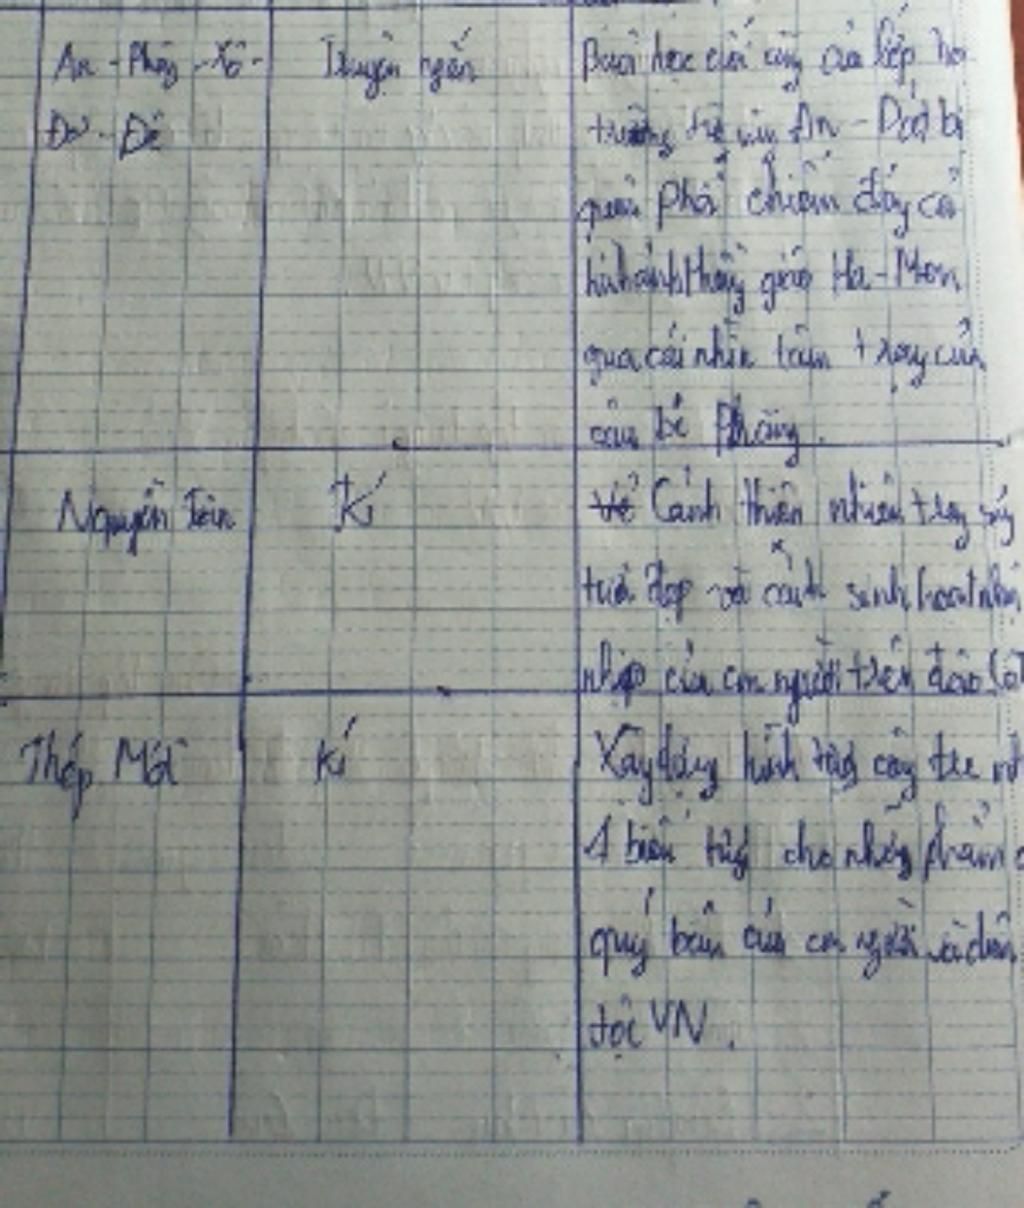 An - Phông - Xô - Truyện ngắn Buổi học cuối cùng của lớp học
Đơ - Đê trường vùng An - Dát bị
quân Phổ chiếm đóng và
hình ảnh thầy giáo Ha - Men
qua cái nhìn tâm trạng của
cậu bé Phrăng.
Nguyễn Tuân Kí Cảnh thiên nhiên trong sáng
tươi đẹp và cảnh sinh hoạt nhộn
nhịp của con người trên đảo Cô
Thép Mới Kí Xây dựng hình tượng cây tre
1 biểu tượng cho những phẩm
quý báu của con người và dân
tộc VN.